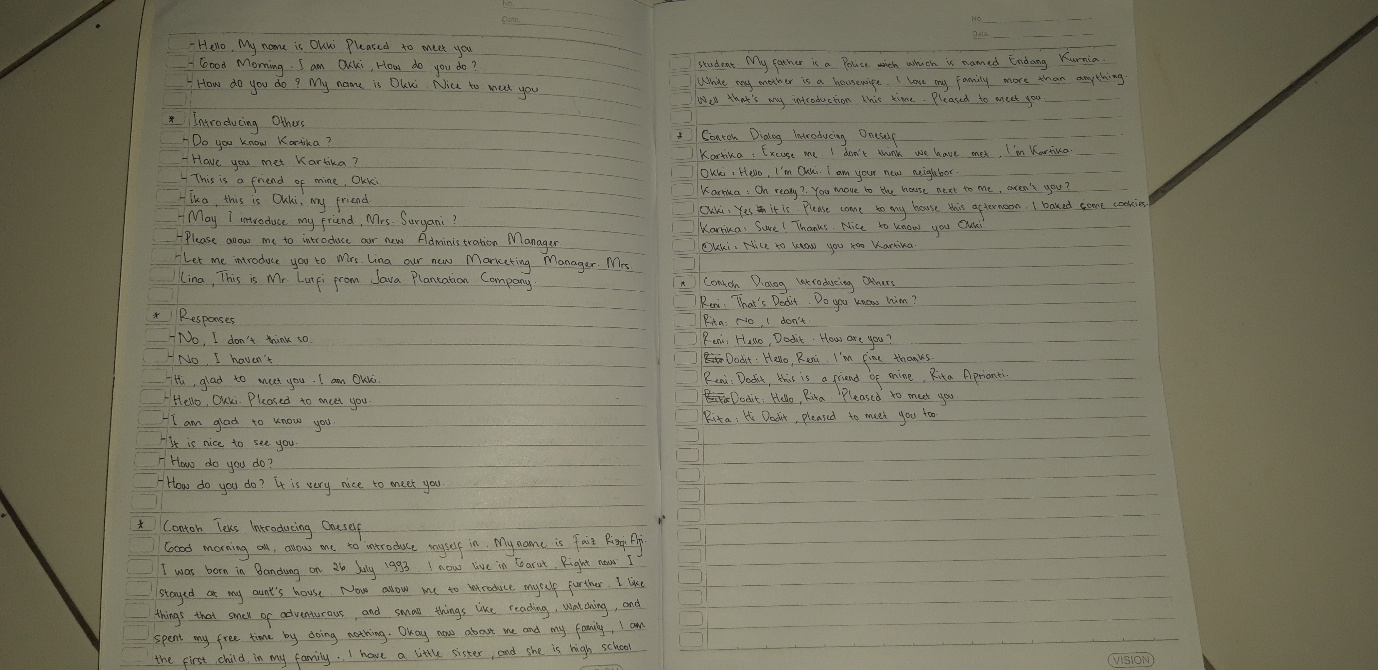 No.
Date.
- Hello, My name is Okki Pleased to meet you
- Good Morning. I am Okki, How do you do?
- How do you do? My name is Okki. Nice to meet you
* Introducing Others
- Do you know Kartika?
- Have you met Kartika?
- This is a friend of mine, Okki
- Ika, this is Okki, my friend
- May I introduce my friend, Mrs. Suryani?
- Please allow me to introduce our new Administration Manager
- Let me introduce you to Mrs. Lina our new Marketing Manager. Mrs.
Lina, This is Mr. Lutfi from Java Plantation Company.
* Responses
- No, I don't think so.
- No, I haven't
- Hi, glad to meet you. I am Okki.
- Hello, Okki. Pleased to meet you.
- I am glad to know you.
- It is nice to see you.
- How do you do?
- How do you do? It is very nice to meet you.
* Contoh Teks Introducing Oneself
Good morning all, allow me to introduce myself in. My name is Faiz Rizqi Aji.
I was born in Bandung on 26 July 1993. I now live in Garut. Right now I
stayed at my aunt's house. Now allow me to introduce myself further. I like
things that smell of adventurous, and small things like reading, watching, and
spent my free time by doing nothing. Okay now about me and my family, I am
the first child in my family. I have a little sister, and she is high school
No.
Date.
student My father is a Police which is named Endang Kurnia.
While my mother is a housewife. I love my family more than anything.
Well that's my introduction this time. Pleased to meet you
* Contoh Dialog Introducing Oneself
Kartika : Excuse me I don't think we have met, I'm Kartika.
Okki : Hello, I'm Okki. I am your new neighbor.
Kartika : Oh really? You move to the house next to me, aren't you?
Okki : Yes it is. Please come to my house this afternoon. I baked some cookies.
Kartika : Sure! Thanks. Nice to know you Okki
Okki : Nice to know you too Kartika.
* Contoh Dialog Introducing Others
Reni : That's Dodit. Do you know him?
Rita : No, I don't.
Reni : Hello, Dodit. How are you?
Dodit : Hello, Reni. I'm fine thanks.
Reni : Dodit, this is a friend of mine, Rita Aprianti.
Dodit : Hello, Rita Pleased to meet you
Rita : Hi Dodit, pleased to meet you too.
VISION